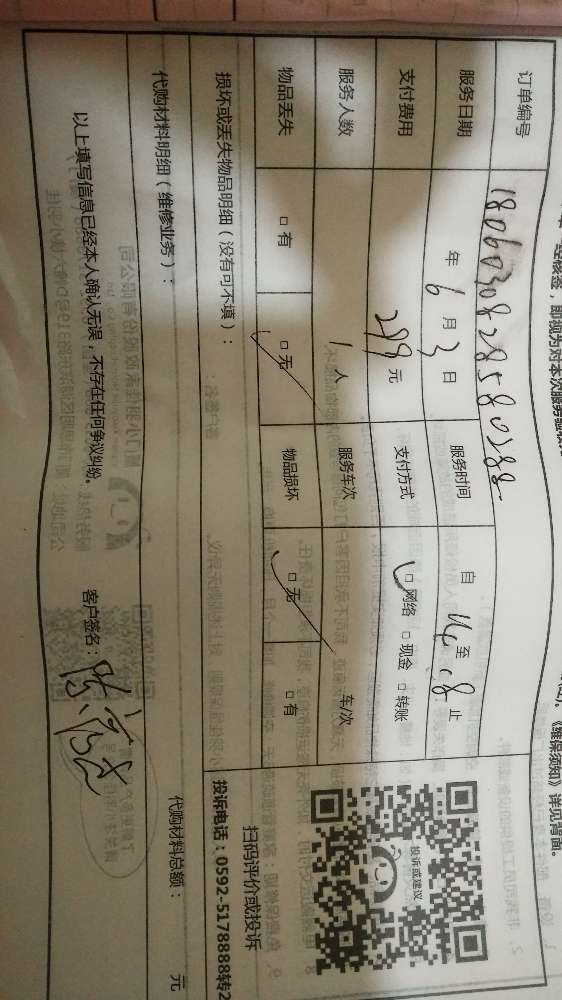 一经核签，即视为对本次服务验收
《维保须知》详见背面。
订单编号 1806030828580288
服务日期 年 6 月 3 日 服务时间 自 14 至 18 止
支付费用 299 元 支付方式 □网络 □现金 □转账
服务人数 1 人 服务车次 车/次
物品丢失 □有 □无 物品损坏 □无 □有
投诉或建议
扫码评价或投诉
投诉电话：0592-5178888转2
损坏或丢失物品明细（没有可不填）：
代购材料明细（维修业务）： 代购材料总额： 元
以上填写信息已经本人确认无误，不存在任何争议纠纷。 客户签名：